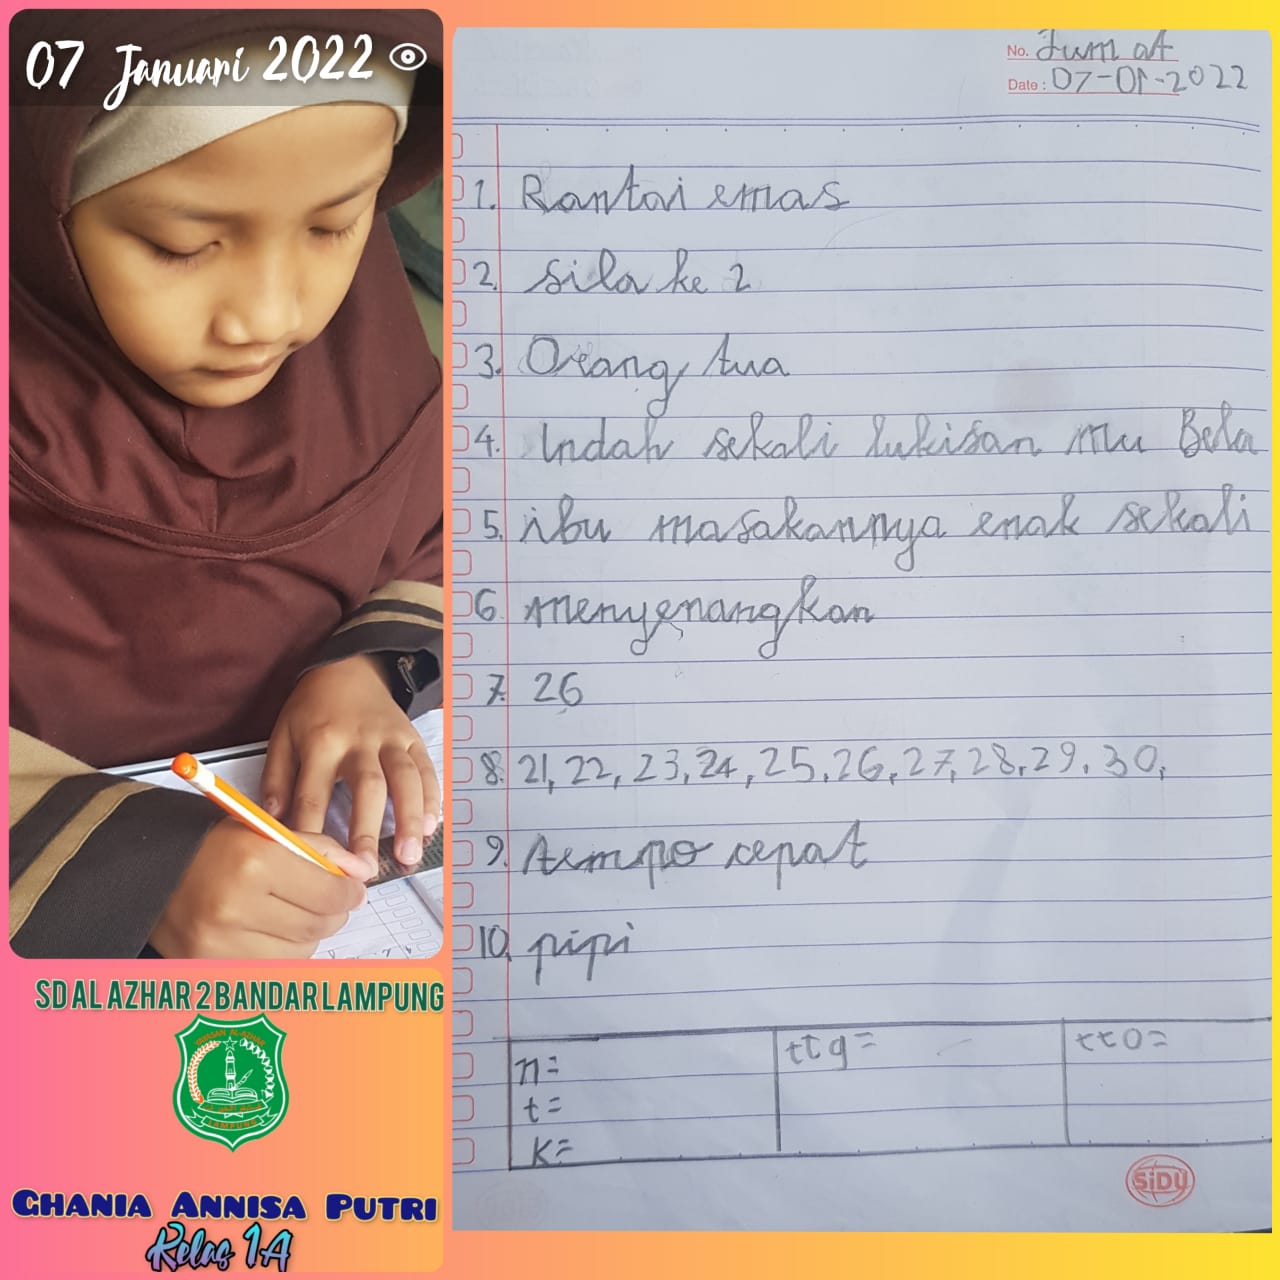 07 Januari 2022
SD AL AZHAR 2 BANDAR LAMPUNG
YAYASAN AL-AZHAR
LAMPUNG
GHANIA ANNISA PUTRI
Kelas 1A
No. Jum at
Date : 07-01-2022
1. Rantai emas
2. Sila ke 2
3. Orang tua
4. Indah sekali lukisan mu Bela
5. ibu masakannya enak sekali
6. menyenangkan
7. 26
8. 21, 22, 23, 24, 25, 26, 27, 28, 29, 30,
9. tempo cepat
10. pipi
n=
t=
k=
ttg=
tto=
SiDU